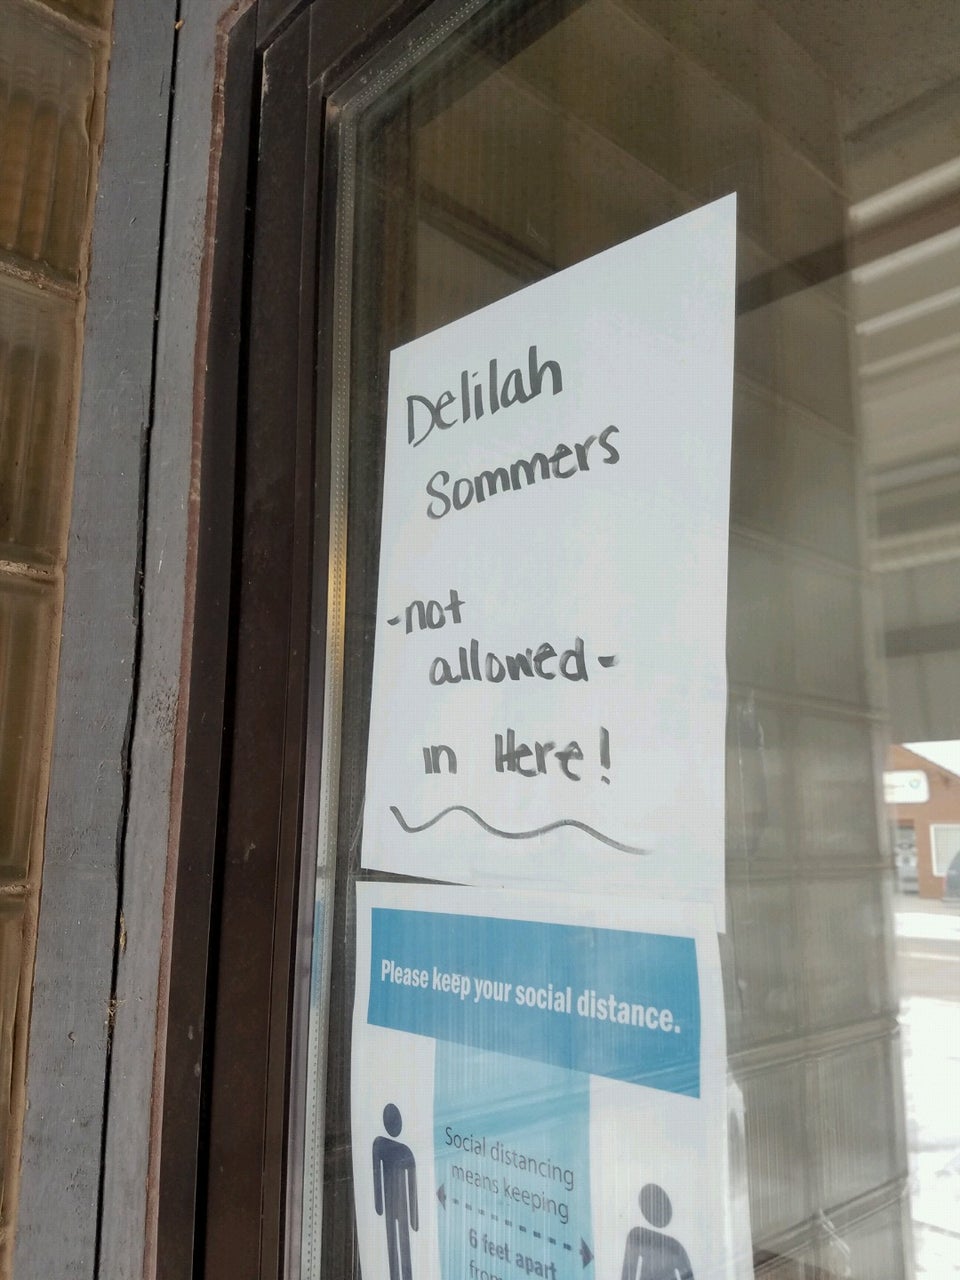 Delilah
Sommers
-not
allowed-
in Here!
Please keep your social distance.
Social distancing
means keeping
6 feet apart
from